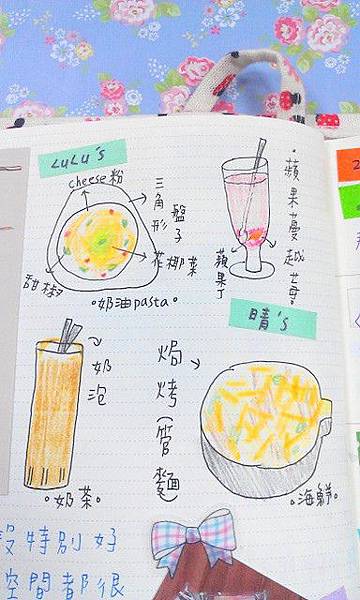 LuLu's
cheese粉
三角形
盤子
花椰菜
甜椒
奶油pasta
蘋果蔓越莓
蘋果丁
晴's
奶泡
奶茶
焗烤(管麵
海鮮
設特別好
空間都很
2